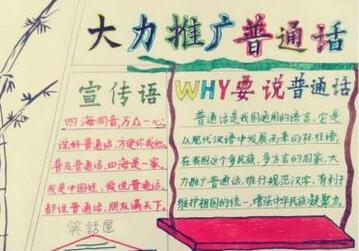 大力推广普通话
宣传语
四海同音,万众一心。
说好普通话,方便你我他。
普及普通话,四海是一家。
我是中国娃,爱说普通话。
都说普通话,朋友满天下。
笑話屋
WHY要说普通话
普通话是我国通用的语言,它是
以现代汉语中发展而来的标准语,
在我国这个多民族、多方言的国家,大
力推广普通话,推行规范汉字,有利于
维护祖国的统一,增强中华民族凝聚力。